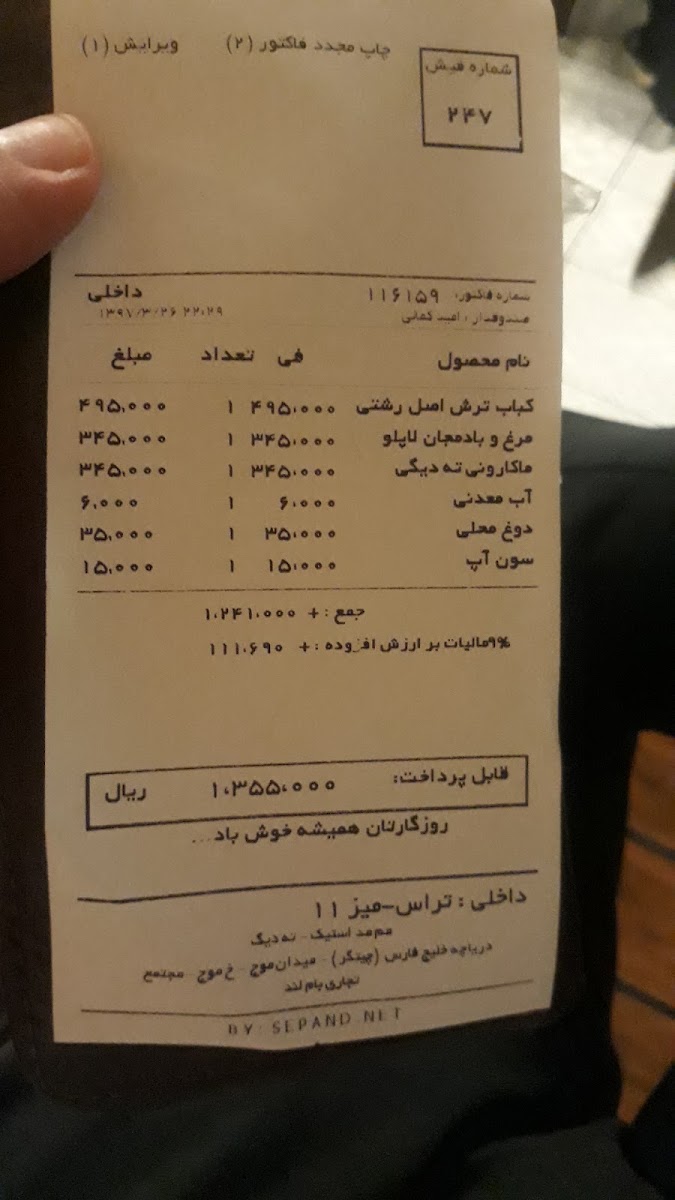 چاپ مجدد فاکتور (۲) ویرایش (۱)
شماره فیش
۲۴۷
شماره فاکتور: ۱۱۶۱۵۹ داخلی
صندوقدار : امید کمانی ۱۳۹۷/۳/۲۶ ۲۲:۲۹
نام محصول فی تعداد مبلغ
کباب ترش اصل رشتی ۴۹۵,۰۰۰ ۱ ۴۹۵,۰۰۰
مرغ و بادمجان لاپلو ۳۴۵,۰۰۰ ۱ ۳۴۵,۰۰۰
ماکارونی ته دیگی ۳۴۵,۰۰۰ ۱ ۳۴۵,۰۰۰
آب معدنی ۶,۰۰۰ ۱ ۶,۰۰۰
دوغ محلی ۳۵,۰۰۰ ۱ ۳۵,۰۰۰
سون آپ ۱۵,۰۰۰ ۱ ۱۵,۰۰۰
جمع : + ۱,۲۴۱,۰۰۰
۹%مالیات بر ارزش افزوده : + ۱۱۱,۶۹۰
قابل پرداخت: ۱,۳۵۵,۰۰۰ ریال
روزگارتان همیشه خوش باد...
داخلی : تراس-میز ۱۱
ممد استیک - ته دیگ
دریاچه خلیج فارس (چیتگر) - میدان موج - خ موج - مجتمع
تجاری بام لند
BY: SEPAND.NET